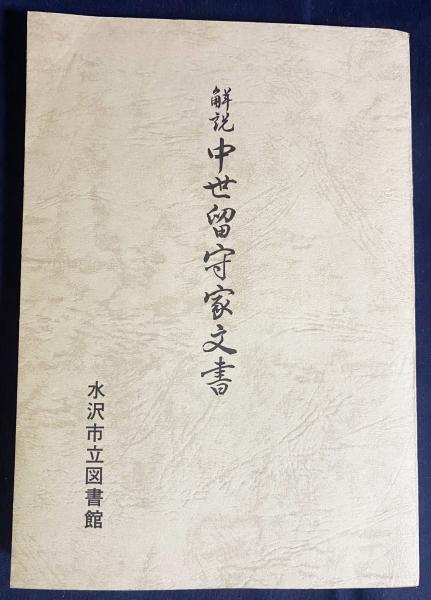 解説中世留守家文書
水沢市立図書館